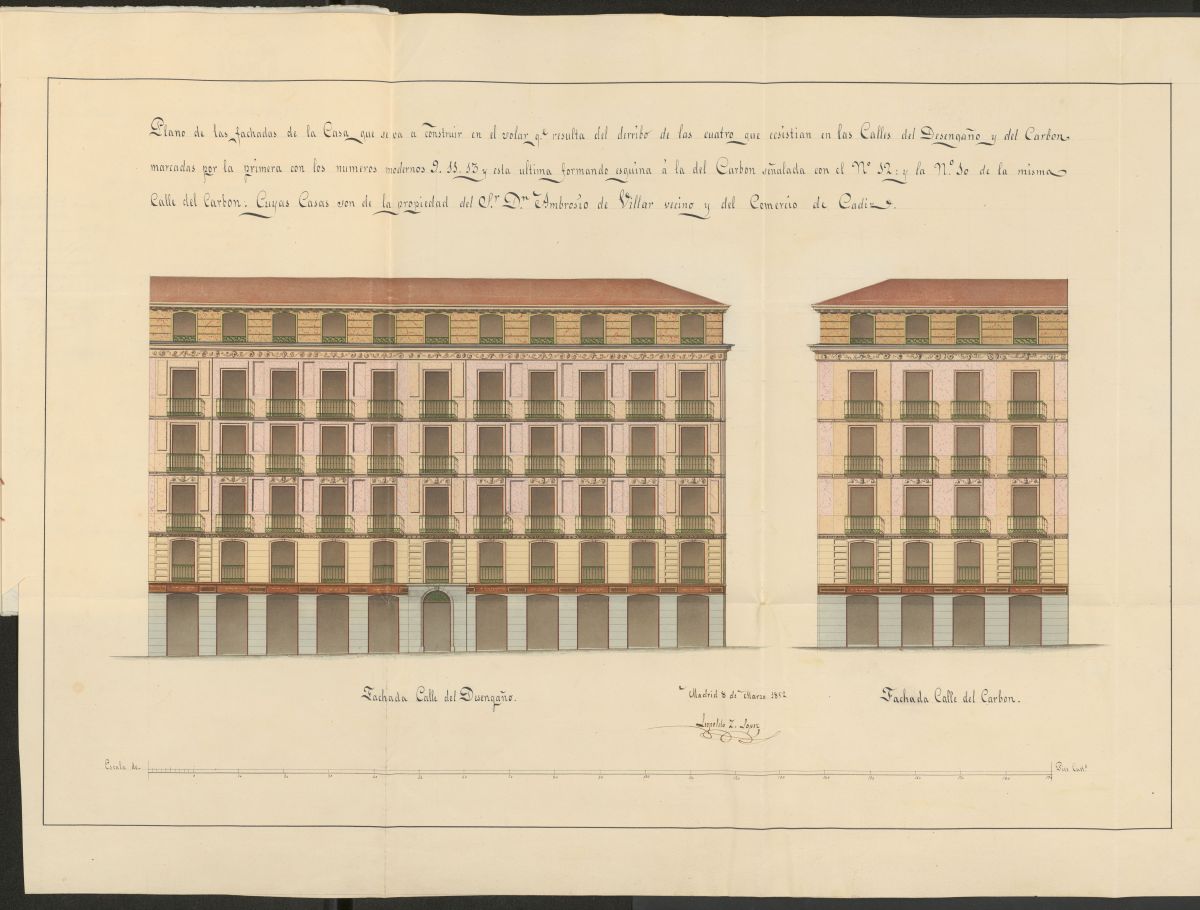 Plano de las fachadas de la Casa que se va a construir en el solar q.e resulta del derribo de las cuatro que ecsistian en las Calles del Desengaño y del Carbon
marcadas por la primera con los numeros modernos 9. 11. 13 y esta ultima formando esquina á la del Carbon señalada con el Nº 12: y la N.º 10 de la misma
Calle del Carbon: Cuyas Casas son de la propiedad del S.r D.n Ambrosio de Villar vecino y del Comercio de Cadiz.
Fachada Calle del Desengaño.
Madrid 8 de Marzo 1852
Leopoldo Z. Lopez
Fachada Calle del Carbon.
Escala de
Pies Cast.s